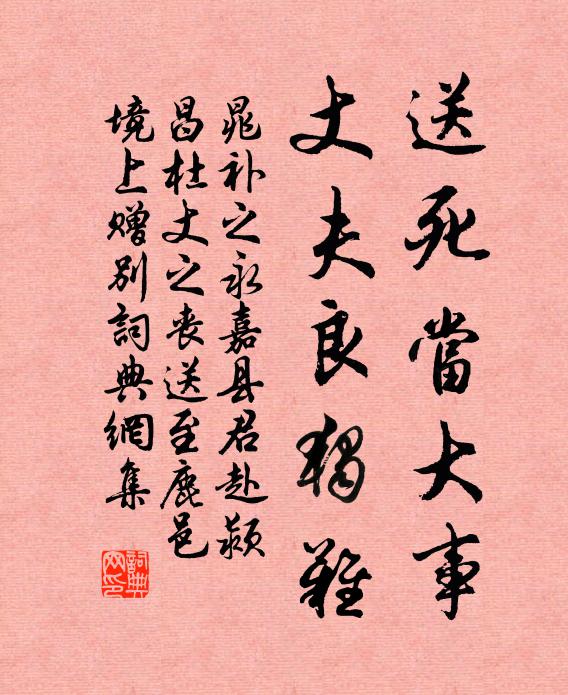 送死當大事
丈夫良獨難
晁补之永嘉县君赴颍
昌杜丈之丧送至鹿邑
境上赠别詞典網集
詞典
网印